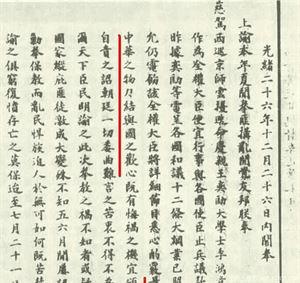 光緒二十六年十二月二十六日內閣奉
上諭本年夏間拳匪搆亂開釁友邦朕奉
慈駕西巡京師雲擾迭命慶親王奕劻大學士李鴻章
作為全權大臣便宜行事與各國使臣止兵議和
昨據奕劻等電呈各國和議十二條大綱業已照
允仍電飭該全權大臣將詳細節目悉心酌覈量
中華之物力結與國之歡心既有悔禍之機宜頒
自責之詔朝廷一切委曲難言之苦衷不得不為
爾天下臣民明諭之此次拳教之禍不知者或疑
國家縱庇匪徒激成大變殊不知五六月間屢詔
勦拳保教而亂民悍族迫人於無可如何既苦禁
諭之俱窮復憤存亡之莫保迨至七月二十一日